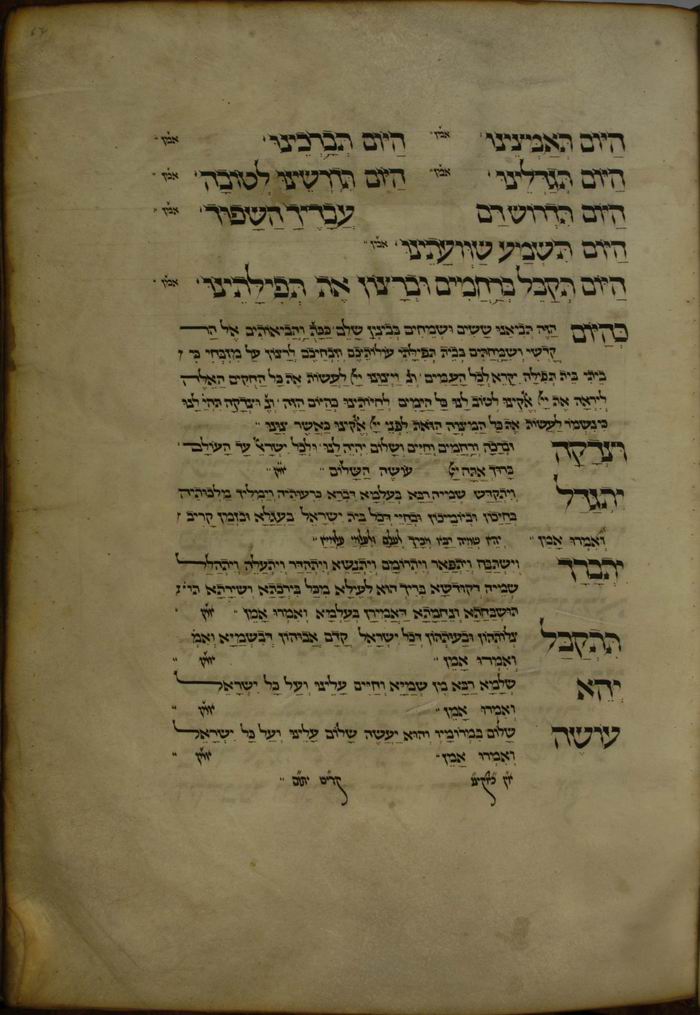 היום תאמצינו אמן היום תברכינו אמן
היום תגדלינו אמן היום תדרשינו לטובה אמן
היום תדרוש דם עבדיך השפוך אמן
היום תשמע שוועתינו אמן
היום תקבל ברחמים וברצון את תפילתינו אמן
כהיום הזה תביאנו ששים ושמחים בבניין שלם ככת והביאותים אל הר
קדשי ושמחתים בבית תפילתי עולותיהם וזבחיהם לרצון על מזבחי כי
ביתי בית תפילה יקרא לכל העמים ויצונו לעשות את כל החקים האלה
ליראה את אלקינו לטוב לנו כל הימים לחיותינו כהיום הזה וצדקה תהיה לנו
כי נשמור לעשות את כל המצוה הזאת לפני אלקינו כאשר צונו
וצדקה וברכה ורחמים וחיים ושלום יהיה לנו ולכל ישראל עד העולם
ברוך אתה עושה השלום
יתגדל ויתקדש שמייה רבא בעלמא דברא כרעותיה וימליך מלכותיה
בחייכון וביומיכון ובחיי דכל בית ישראל בעגלא ובזמן קריב
ואמרו אמן יהא שמיה רבא מברך לעלם ולעלמי עלמיא
יתברך וישתבח ויתפאר ויתרומם ויתנשא ויתהדר ויתעלה ויתהלל
שמייה דקודשא בריך הוא לעילא מכל בירכתא ושירתא
תושבחתא ונחמתא דאמירן בעלמא ואמרו אמן
תתקבל צלותהון ובעותהון דכל ישראל קדם אבוהון דבשמייא ואמ
ואמרו אמן
יהא שלמא רבא מן שמייא וחיים עלינו ועל כל ישראל
ואמרו אמן
עושה שלום במרומיו והוא יעשה שלום עלינו ועל כל ישראל
ואמרו אמן
קדיש יתום